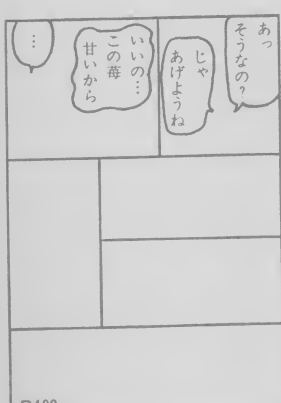 あっ
そうなの?
じゃ
あげようね
いいの…
この苺
甘いから
…